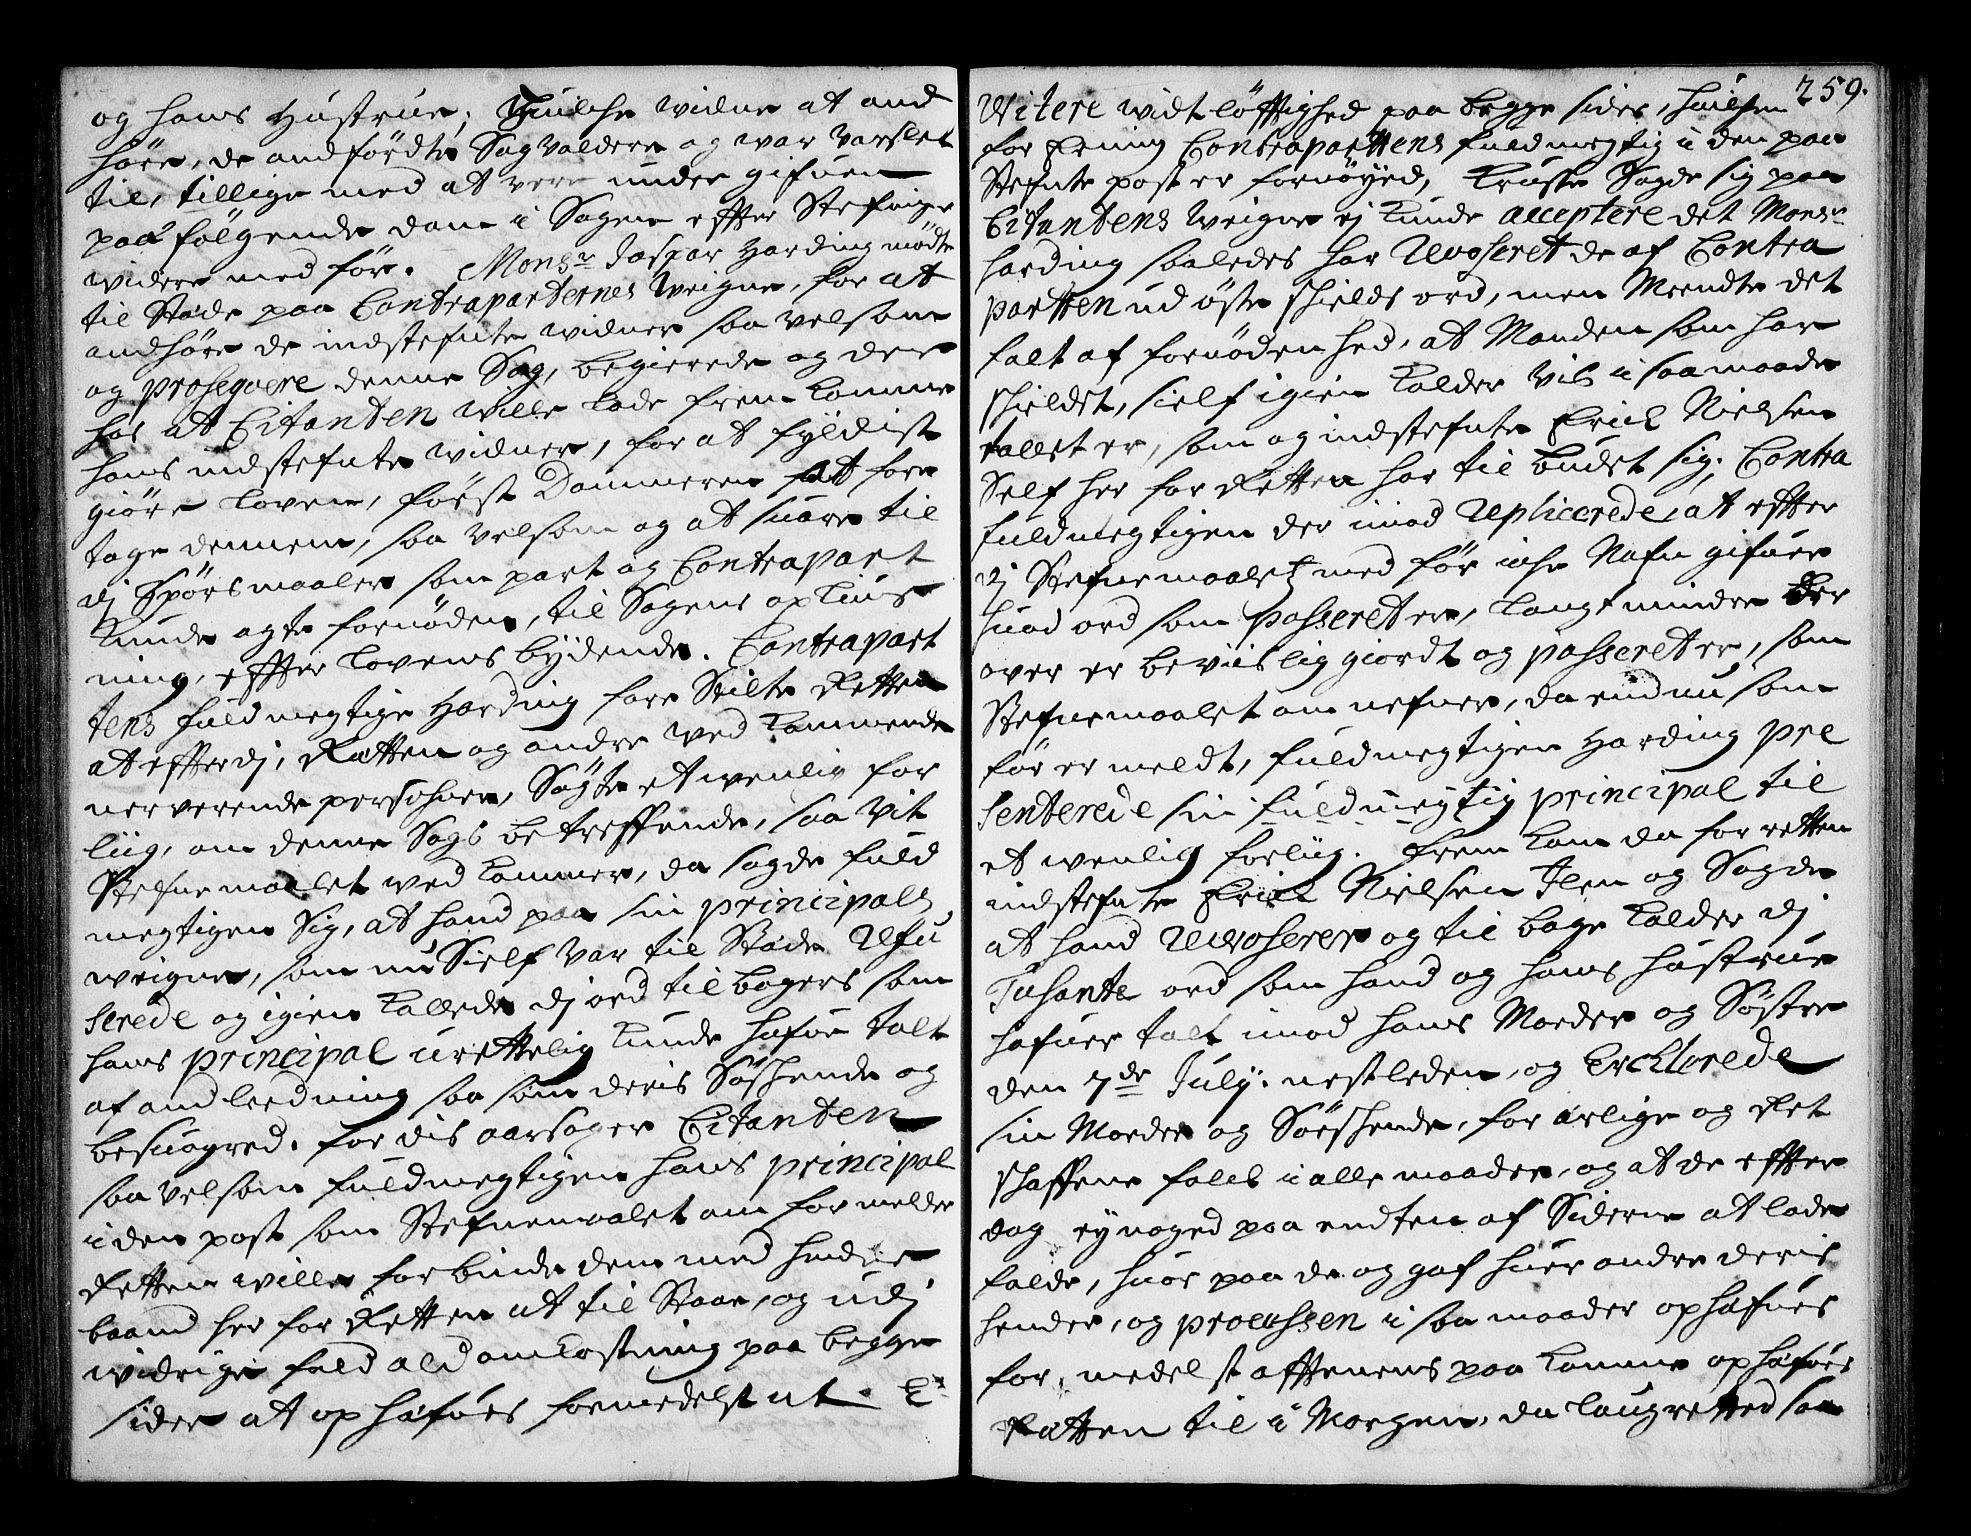 og hans Hustrue; Huilche widne at and
høre, de andførdte Sagvoldere og war varslet
til, tillige med at vere under gifuen
paa følgende dom i Sagen effter Stefnings
widere med før. Monsr Jaspar Harding mødte
til Stæde paa Contraparternes Weigne, for at
andhøre de indstefnte widner saa velsom
og prosequere denne Sag, begierede og der
hos at Citanten wille lade frem komme
hans indstefnte widner, for at fyldist
giøre loven, først Dommeren Æd fore
tage dennem, saa velsom og at suare til
dj Spørsmaaler som part og Contrapart
kunde agte fornøden, til Sagens oplius
ning, effter lovens bydende. Contrapart
tens fuldmegtige Harding fore Stilte Retten
at effterdj, Retten og andre ved kommende
nerverende persohner, Søgte et wenlig for
liig, om denne Sags betreffende, saa vit
Stefnemaalet ved kommer, da sagde fuld
megtigen Sig, at hand paa sin principals
weigne, som nu Sielf var til Stæde Refu
serede og igien kallede dj ord tilbagers som
hans principal urettelig kunde hafue talt
af andleedning saa som deris Søskende og
besuogred. for dis aarsager Citanten
saa velsom fuldmegtigen hans principal
i den post som Stefnemaalet om formelder
Retten wille forbinde dem med
baand her for Retten at til Staae, og udj
widrige fald ald omkostning paa begge
sider at ophæfues formedelst at
259.
Witere widtløfftighed paa begge sider, huilchen
for Erning Contraparttens fuldmegtig i den paa
Stefnte post er fornøyed, Kruse Sagde sig paa
Citantens weigne ej kunde acceptere det Monsr
Harding saaledes har Revoseret de af Contra
partten udøste skields ord, men Meendte det
falt af fornødenhed, at Manden som har
skieldet, sielf igien kalder vis i saa maade
tallet er, som og indstefnte Erick Nielsen
Self her for Retten har til budet sig; Contra
fuldmegtigen der imod Replicerede, at effter
dj Stefnemaalet med før iche Nafn gifuer
huad ord som passeret er, langt mindre der
over er beviislig giordt og passeret er, som
Stefnemaalet om nefner, da endnu som
før er meldt, fuldmegtigen Harding pre
senterede sin fuldmegtig principal til
et wenlig forliig. Frem kom da for retten
indstefnte Erick Nielsen Ilen og Sagde
at hand Revoserer og til bage kalder dj
Tusante ord som hand og hans hustrue
hafuer talt imod hans Moder og Søster
den 7de July. nestleden, og Ercklerede
sin Moder og Sørskende, for ærlige og Ret
skaffene folck i alle maader, og at de effter
dag ey noged paa endten af Siderne at lade
falde, huor paa de og gaf huer andre deris
hender, og processen i saa maader ophæfues
for, medelst afftenens paa komme ophæfues
Retten til i Morgen, da laugretted saa